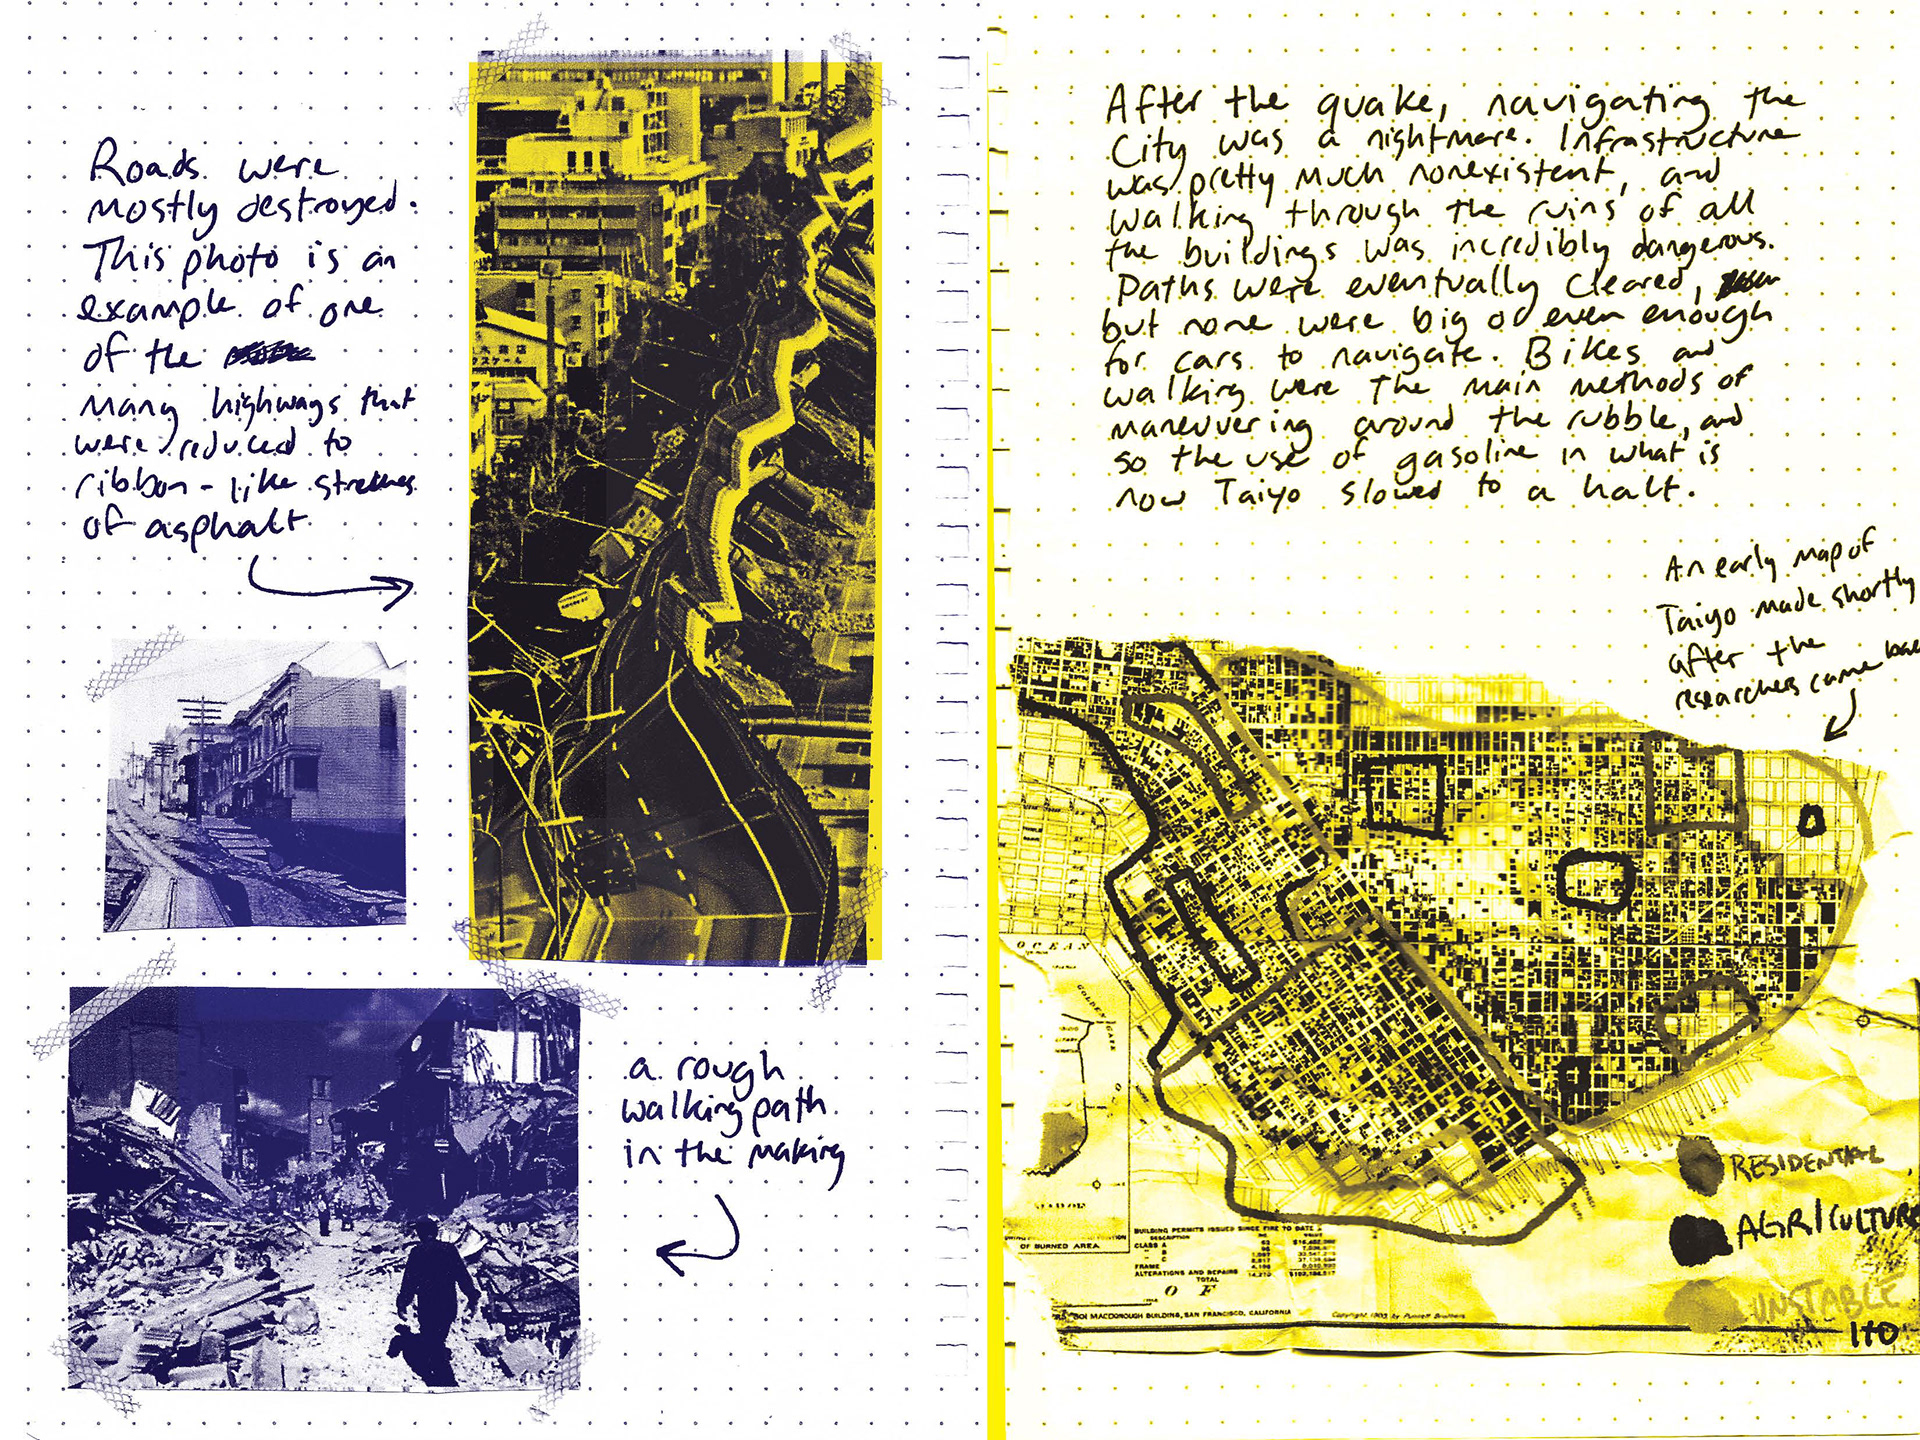 Roads were
mostly destroyed.
This photo is an
example of one
of the
many highways that
were reduced to
ribbon-like stretches
of asphalt
a rough
walking path
in the making
After the quake, navigating the
City was a nightmare. Infrastructure
was pretty much nonexistent, and
walking through the ruins of all
the buildings was incredibly dangerous.
Paths were eventually cleared,
but none were big or even enough
for cars to navigate. Bikes and
walking were the main methods of
maneuvering around the rubble, and
so the use of gasoline in what is
now Taiyo slowed to a halt.
An early map of
Taiyo made shortly
after the
researchers came
OCEAN
GOLDEN GATE
RESIDENTIAL
AGRICULTURE
UNSTABLE
OF BURNED AREA
BUILDING PERMITS ISSUED SINCE FIRE TO DATE
DESCRIPTION
CLASS A
B
C
FRAME
ALTERATIONS AND REPAIRS
TOTAL
OF
MACDONOUGH BUILDING, SAN FRANCISCO, CALIFORNIA